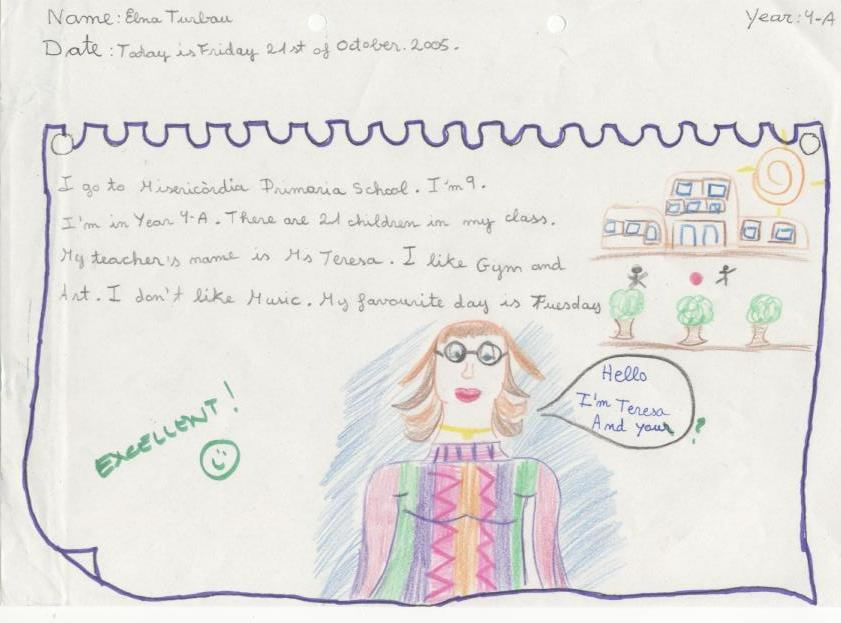 Name: Elna Turbau
Year: 4-A
Date: Today is Friday 21st of October. 2005.
I go to Misericòrdia Primaria School. I'm 9.
I'm in Year 4-A. There are 21 children in my class.
My teacher's name is Ms Teresa. I like Gym and
Art. I don't like Music. My favourite day is Tuesday
Hello
I'm Teresa
And your ?
EXCELLENT!